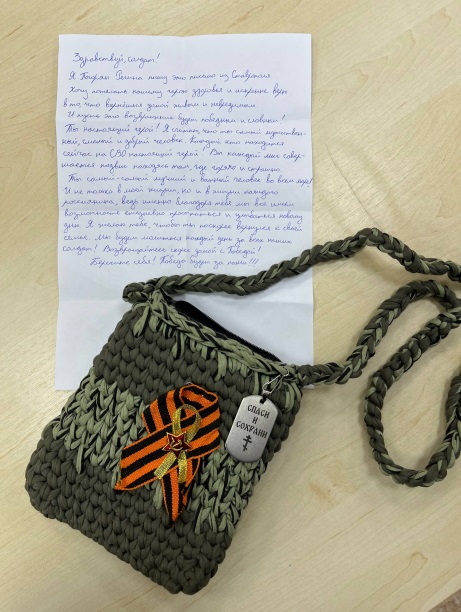 Здравствуй, солдат!
Я Полина пишу это письмо из Ставрополя.
Хочу пожелать нашему герою здоровья и искренне верю
в то, что вернёшься домой живым и невредимым.
И пусть это возвращение будет победным и славным!
Ты настоящий герой! Я считаю, что ты самый мужествен-
ный, смелый и добрый человек. Каждый кто находится
сейчас на СВО настоящий герой! Вы каждый миг совер-
шаете подвиг находясь там, где тяжело и страшно.
Ты самый-самый лучший и важный человек во всём мире!
И не только в моей жизни, но и в жизни каждого
россиянина, ведь именно благодаря тебе мы все имеем
возможность спокойно просыпаться и улыбаться новому
дню. Я желаю тебе, чтобы ты поскорее вернулся к своей
семье. Мы будем молиться каждый день за всех наших
солдат! Возвращайтесь скорее домой с Победой!
Берегите себя! Победа будет за нами!!!
СПАСИ
И
СОХРАНИ